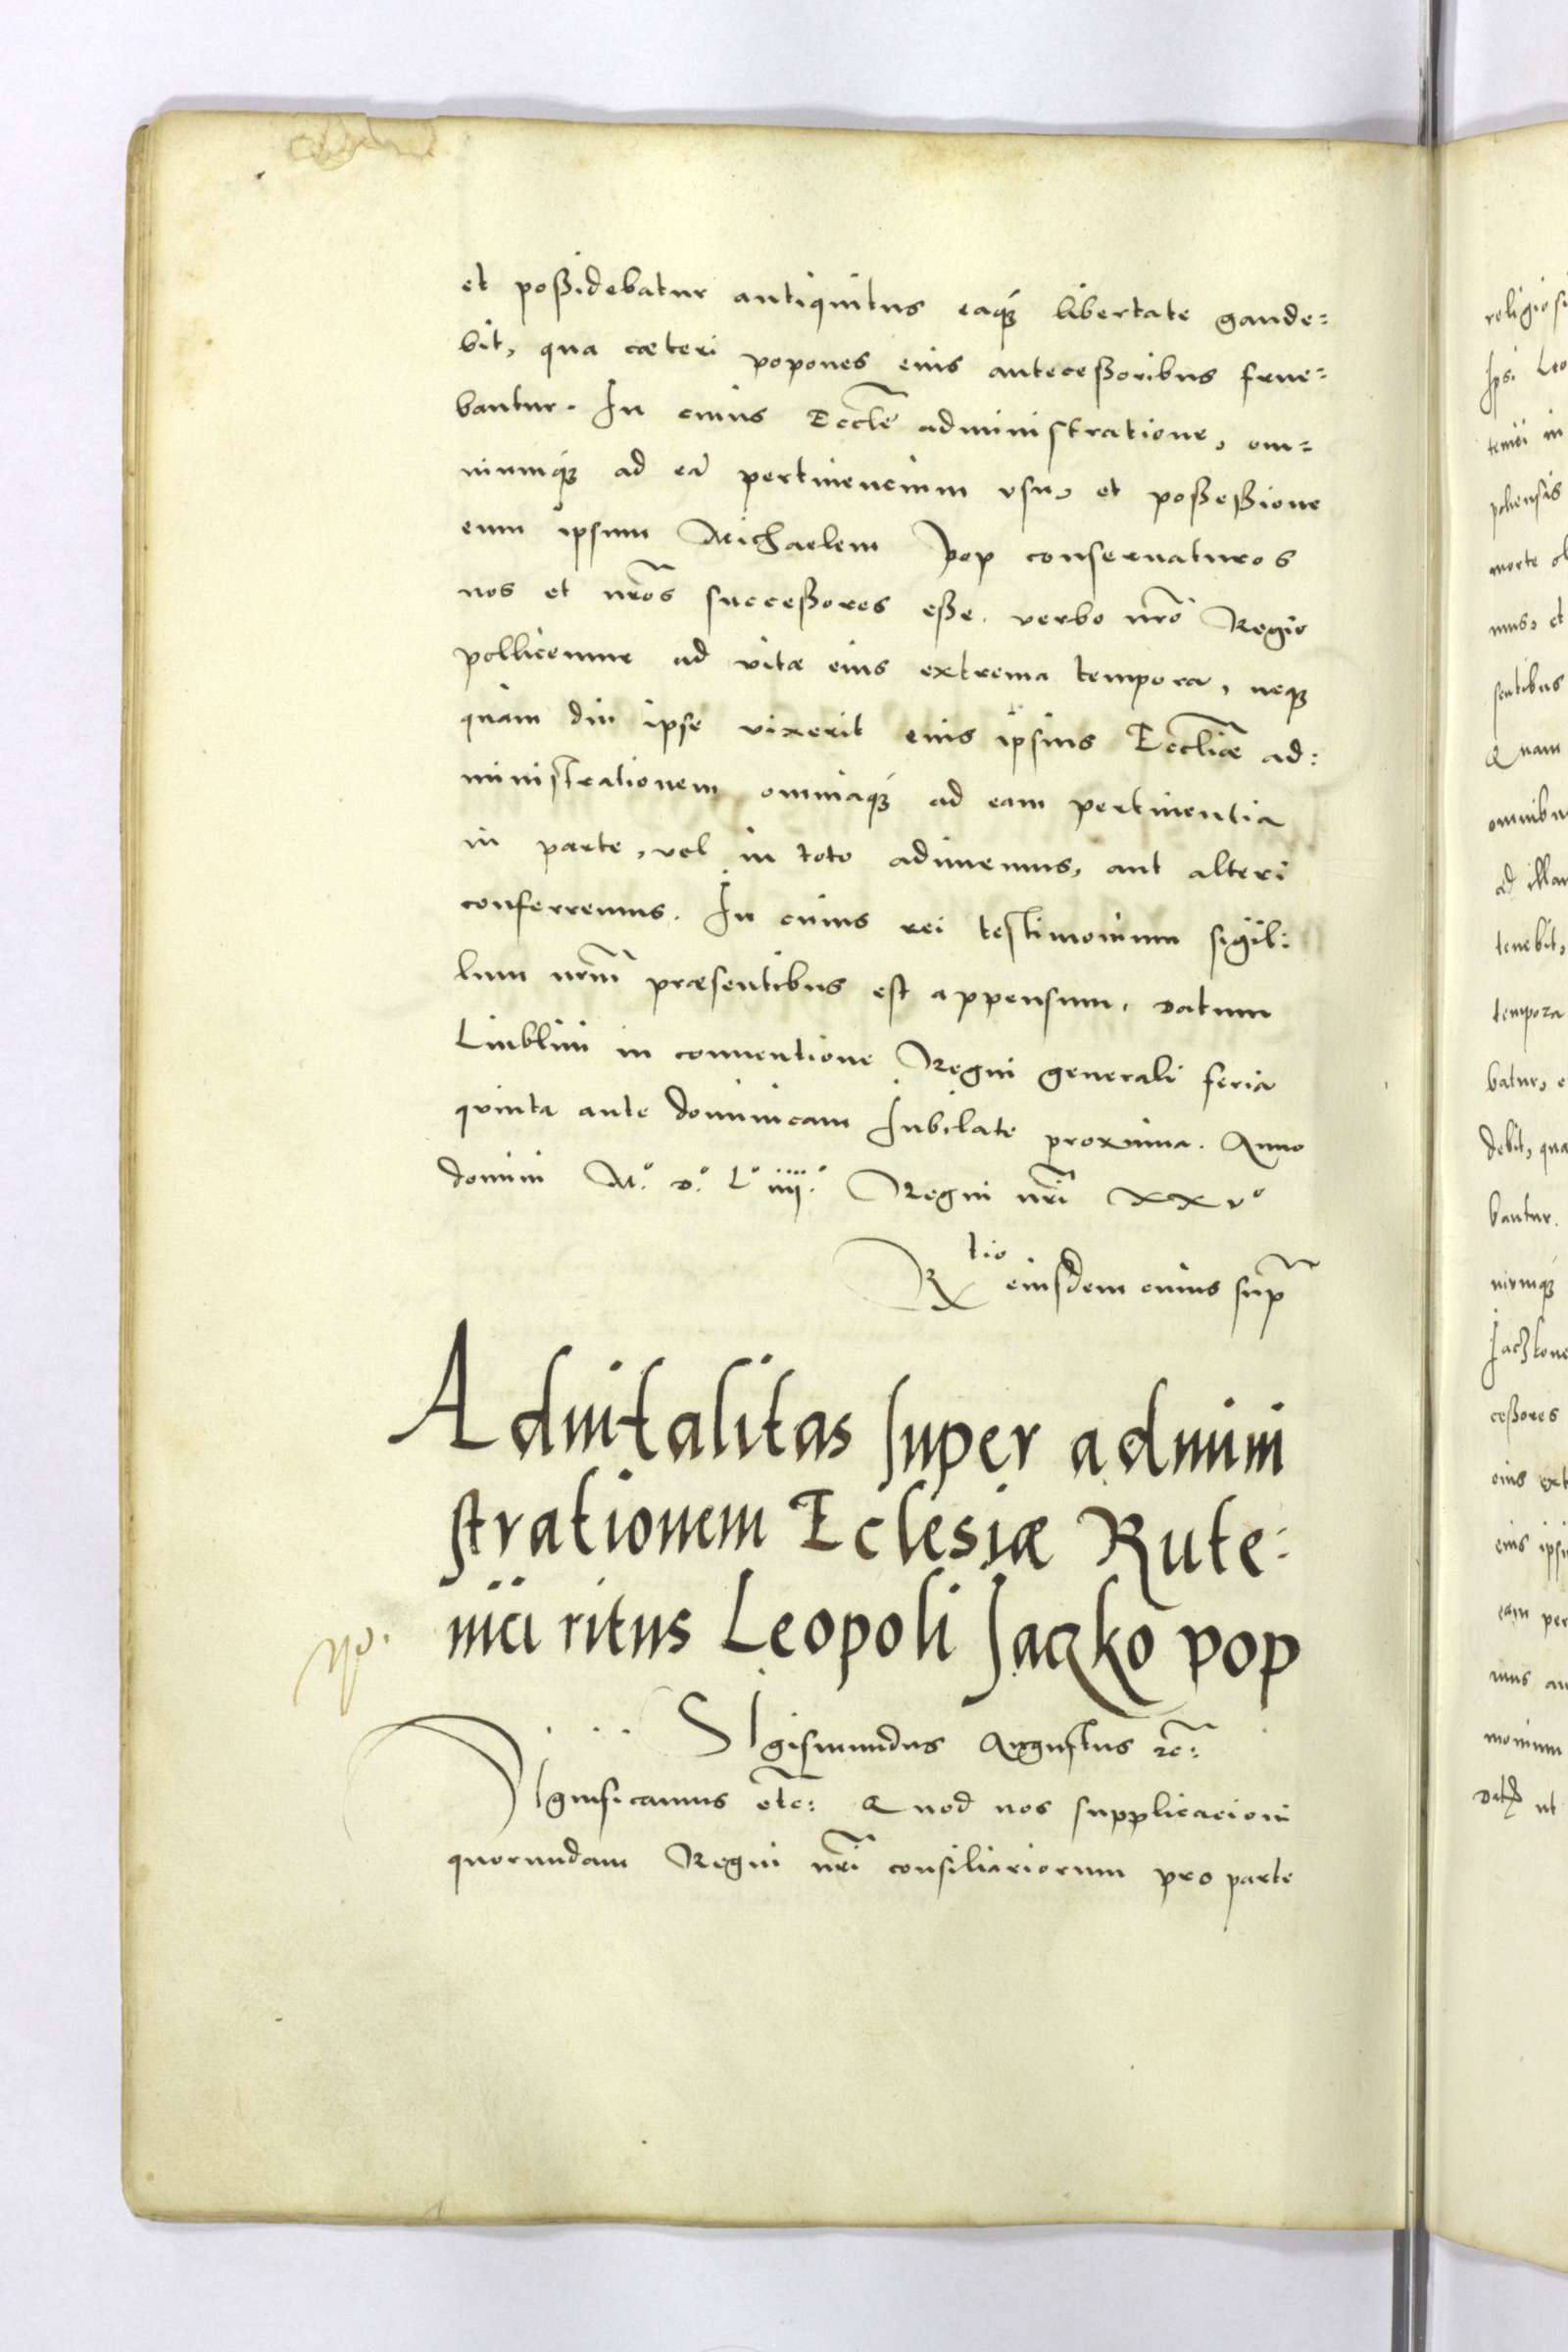 et poßidebatur antiquitus eaq́ue libertate gaude=
bit, qua cæteri popones eius anteceßoribus frue=
bantur. In cuius Eccłe administratione, om=
niumq́ue ad eā pertinencium vsu, et poßeßione
eum ipsum Michaelem Pop conseruaturos
nos et nr̃os succeßores eße. verbo nr̃o Regio
pollicemur ad vitæ eius extrema tempora, neq;
quàm diu ipse vixerit eius ipsius Eccliæ ad:
ministrationem omniaq́ue ad eam pertinentia
in parte, vel in toto adimemus, aut alteri
conferremus. In cuius rei testimonium sigil:
lum nrm̃ præsentibus est appensum. Datum
Liublini in conuentione Regni generali feria
quinta ante dominicam Iubilate proxima. Anno
domini M.° D.° L° iiij.° Regni nrĩ XXV°
Rtio eiusdem cuius sup̃
Aduitalitas super admini
strationem Eclesiæ Rute:
nici ritus Leopoli Jaczko pop
SIgismundus Augustus rc̃:
SIgnificamus etc̃: Quod nos supplicacioni
quorundam Regni nrĩ consiliariorum pro parte
religios
Ipsi Leo
in
poliensis
morte ob
mus, et
sentibus
Quam
omnibu
ad illam
tenebit,
tempora
batur, e
debit, qua
bantur.
niumq́ue
Jaczkone
ceßores
eius ext
eius ipsi
eam per
mus au
monium
Dat ut